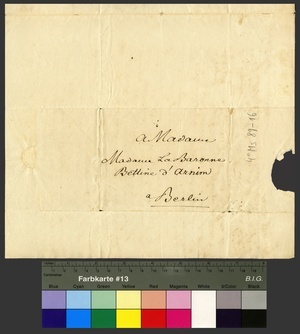 à
A Madame
Madame La Baronne
Bettine d'Arnim
a Berlin
4° Ms 89-16
Farbkarte #13
B.I.G.
Blue Cyan Green Yellow Red Magenta White 3/Color Black